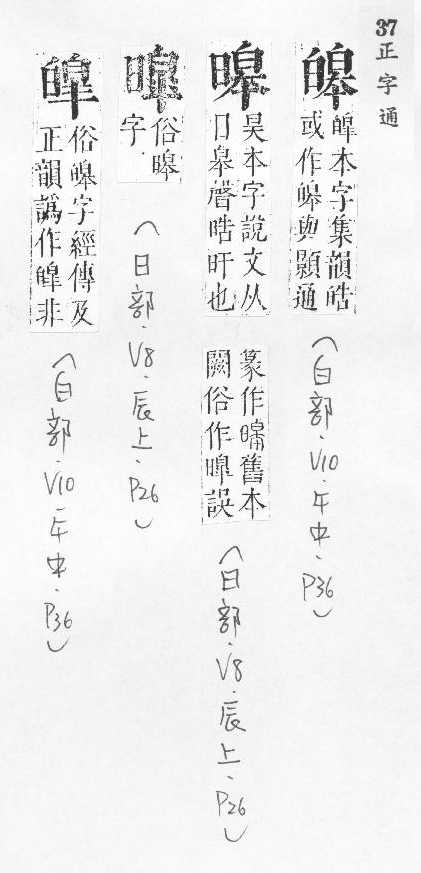 37 正字通
皞
皡本字集韻晧
或作皞與顥通
(白部.V10.午中.P36)
暤
昊本字說文从
日皋聲晧旰也
篆作舊本
闕俗作暭誤
(日部.V8.辰上.P26)
暭
俗暤
字
(日部.V8.辰上.P26)
皡
俗皞字經傳及
正韻譌作皡非
(白部.V10.午中.P36)